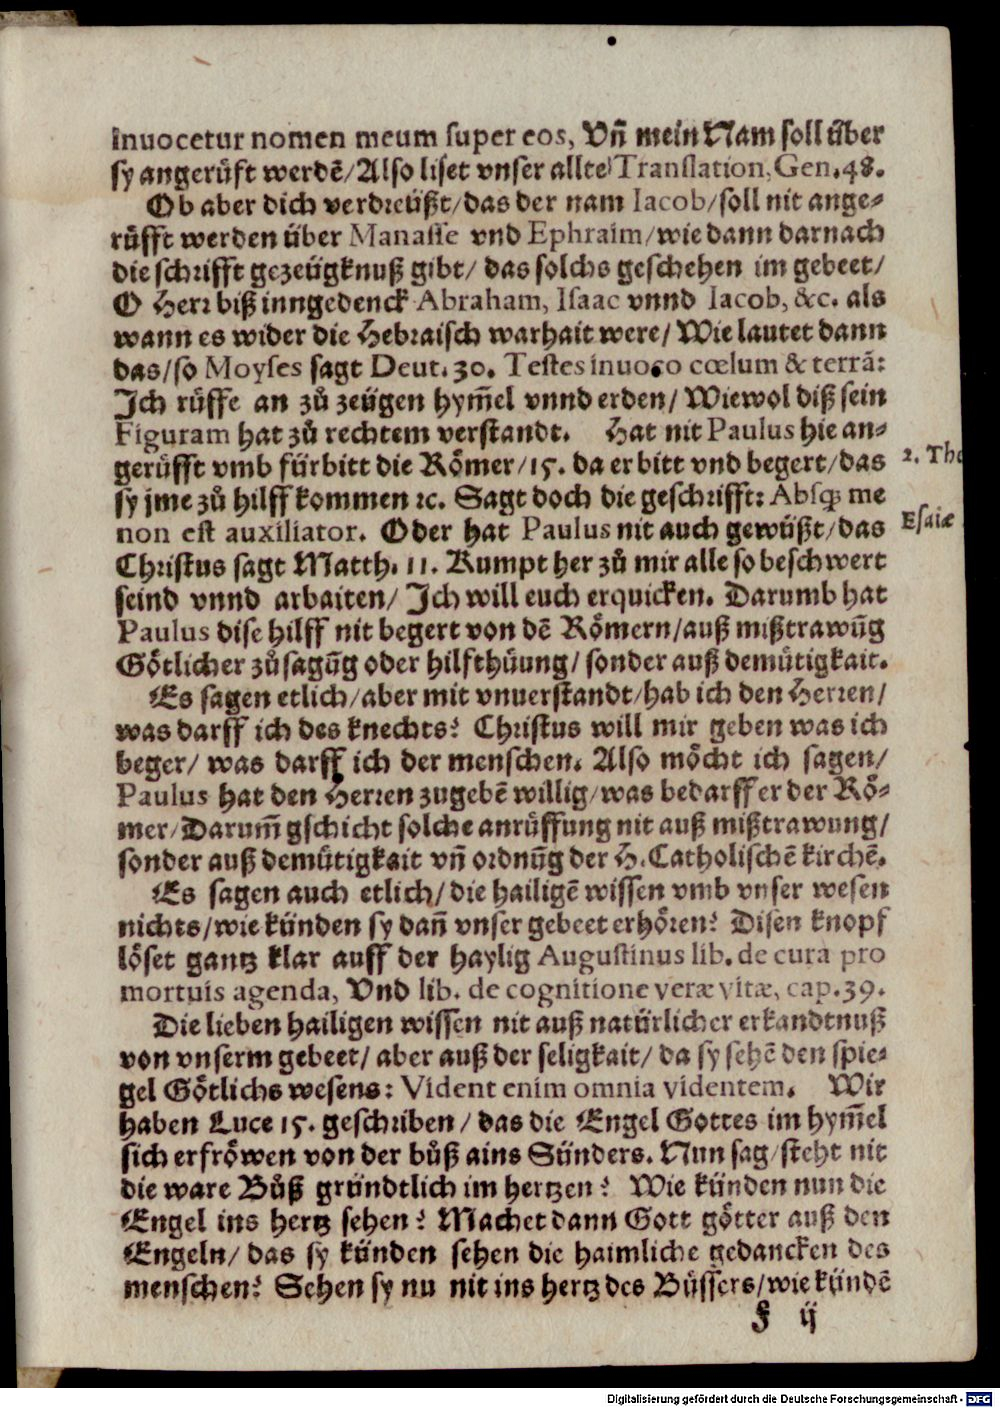 Inuocetur nomen meum super eos, Vñ mein Nam soll über
sy angerüft werdẽ/Also liset vnser allte Translation, Gen.48.
Ob aber dich verdreüßt/das der nam Iacob/soll nit ange-
rüfft werden über Manasse vnd Ephraim/wie dann darnach
die schrifft gezeügknuß gibt/ das solchs geschehen im gebeet/
O Herr biß inngedenck Abraham, Isaac vnnd Iacob, &c. als
wann es wider die Hebraisch warhait were/ Wie lautet dann
das/so Moyses sagt Deut.30. Testes inuoco cœlum & terrã:
Ich rüffe an zů zeügen hym̃el vnnd erden/ Wiewol diß sein
Figuram hat zů rechtem verstandt. Hat nit Paulus hie an-
gerüfft vmb fürbitt die Römer/15. da er bitt vnd begert/das
2. The
sy jme zů hilff kommen ꝛc. Sagt doch die geschrifft: Absqꝫ me
non est auxiliator. Oder hat Paulus nit auch gewüßt/das
Esaiæ
Christus sagt Matth. 11. Kumpt her zů mir alle so beschwert
seind vnnd arbaiten/ Ich will euch erquicken. Darumb hat
Paulus dise hilff nit begert von dẽ Römern/auß mißtrawũg
Götlicher zůsagũg oder hilfthüung/ sonder auß demütigkait.
Es sagen etlich/aber mit vnuerstandt/hab ich den Herren/
was darff ich des knechts? Christus will mir geben was ich
beger/ was darff ich der menschen. Also möcht ich sagen/
Paulus hat den Herren zugebẽ willig/was bedarff er der Rö-
mer/Darum̃ gschicht solche anrüffung nit auß mißtrawung/
sonder auß demütigkait vñ ordnũg der H. Catholischẽ kirchẽ.
Es sagen auch etlich/die hailigẽ wissen vmb vnser wesen
nichts/wie künden sy dañ vnser gebeet erhören? Disen knopf
löset gantz klar auff der haylig Augustinus lib. de cura pro
mortuis agenda, Vnd lib. de cognitione veræ vitæ, cap.39.
Die lieben hailigen wissen nit auß natürlicher erkandtnuß
von vnserm gebeet/ aber auß der seligkait/ da sy sehẽ den spie-
gel Götlichs wesens: Vident enim omnia videntem. Wir
haben Luce 15. geschriben/ das die Engel Gottes im hym̃el
sich erfröwen von der bůß ains Sünders. Nun sag/steht nit
die ware Bůß gründtlich im hertzen? Wie künden nun die
Engel ins hertz sehen? Machet dann Gott götter auß den
Engeln/ das sy künden sehen die haimliche gedancken des
menschen? Sehen sy nu nit ins hertz des Büssers/wie kündẽ
F ij
Digitalisierung gefördert durch die Deutsche Forschungsgemeinschaft - DFG